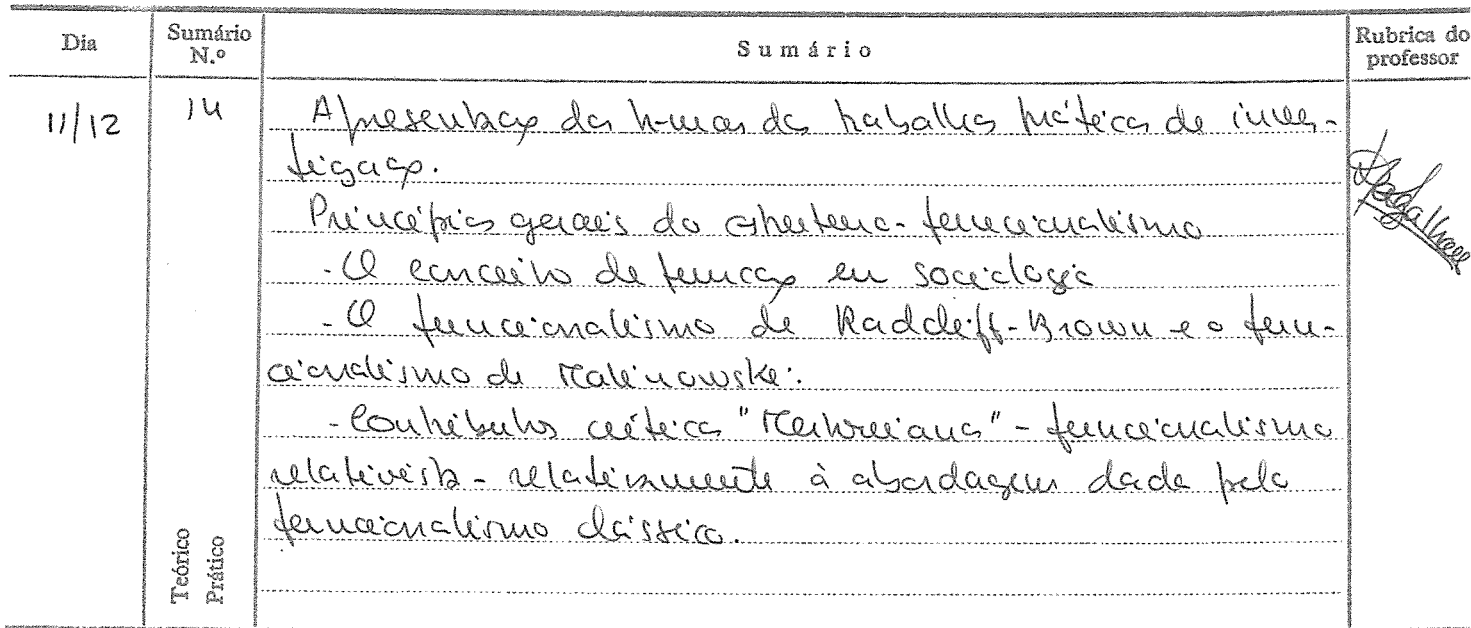 Dia
Sumário
N.º
Sumário
Rubrica do
professor
11/12
14
Apresentação dos temas dos trabalhos práticos de inves-
tigação.
Princípios gerais do estruturo-funcionalismo
- O conceito de função em sociologia
- O funcionalismo de Radcliff-Brown e o fun-
cionalismo de Malinowski.
- Contributos críticos "Mertonianos" - funcionalismo
relativista - relativamente à abordagem dada pelo
funcionalismo clássico.
Teórico
Prático